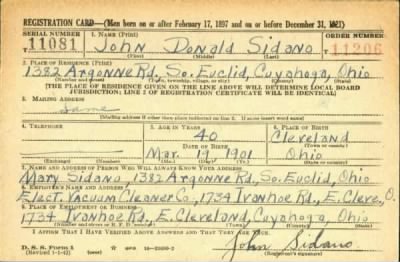 REGISTRATION CARD—(Men born on or after February 17, 1897 and on or before December 31, 1921)
SERIAL NUMBER 1. NAME (Print) ORDER NUMBER
11081 John Donald Sidano 11206
(First) (Middle) (Last)
2. PLACE OF RESIDENCE (Print)
1382 Argonne Rd., So. Euclid, Cuyahoga, Ohio
(Number and street) (Town, township, village, or city) (County) (State)
[THE PLACE OF RESIDENCE GIVEN ON THE LINE ABOVE WILL DETERMINE LOCAL BOARD
JURISDICTION; LINE 2 OF REGISTRATION CERTIFICATE WILL BE IDENTICAL]
3. MAILING ADDRESS
Same
[Mailing address if other than place indicated on line 2. If same insert word same]
4. TELEPHONE 5. AGE IN YEARS 6. PLACE OF BIRTH
40 Cleveland
DATE OF BIRTH (Town or county)
Mar. 19 1901 Ohio
(Exchange) (Number) (Mo.) (Day) (Yr.) (State or country)
7. NAME AND ADDRESS OF PERSON WHO WILL ALWAYS KNOW YOUR ADDRESS
Mary Sidano, 1382 Argonne Rd., So. Euclid, Ohio
8. EMPLOYER'S NAME AND ADDRESS
Elect. Vacuum Cleaner Co., 1734 Ivanhoe Rd., E. Cleve., O.
9. PLACE OF EMPLOYMENT OR BUSINESS
1734 Ivanhoe Rd., E. Cleveland, Cuyahoga, Ohio
(Number and street or R. F. D. number) (Town) (County) (State)
I AFFIRM THAT I HAVE VERIFIED ABOVE ANSWERS AND THAT THEY ARE TRUE.
D. S. S. Form 1
(Revised 1-1-42) John Sidano